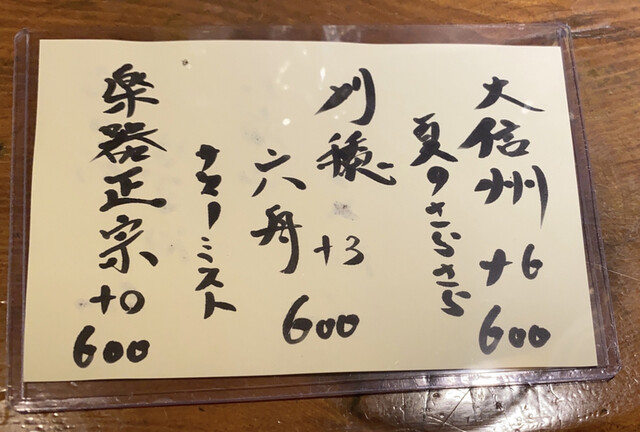 大信州 +6 600
夏のさらさら
刈穂 +3 600
六舟
サマーミスト
楽器正宗 +0 600